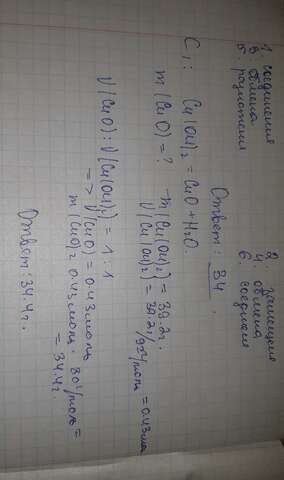 1. соединения
3. обмена
5. разложения
2. замещения
4. обмена
6. соединен
Ответ: 34.
C₁: Cu(OH)₂ = CuO + H₂O.
m(CuO) = ? m(Cu(OH)₂) = 39.2г.
ν(Cu(OH)₂) = 39.2г/92г/моль = 0.43моль
ν(CuO) : ν(Cu(OH)₂) = 1 : 1
=> ν(CuO) = 0.43моль
m(CuO) = 0.43моль · 80г/моль =
= 34.4г
Ответ: 34.4г.